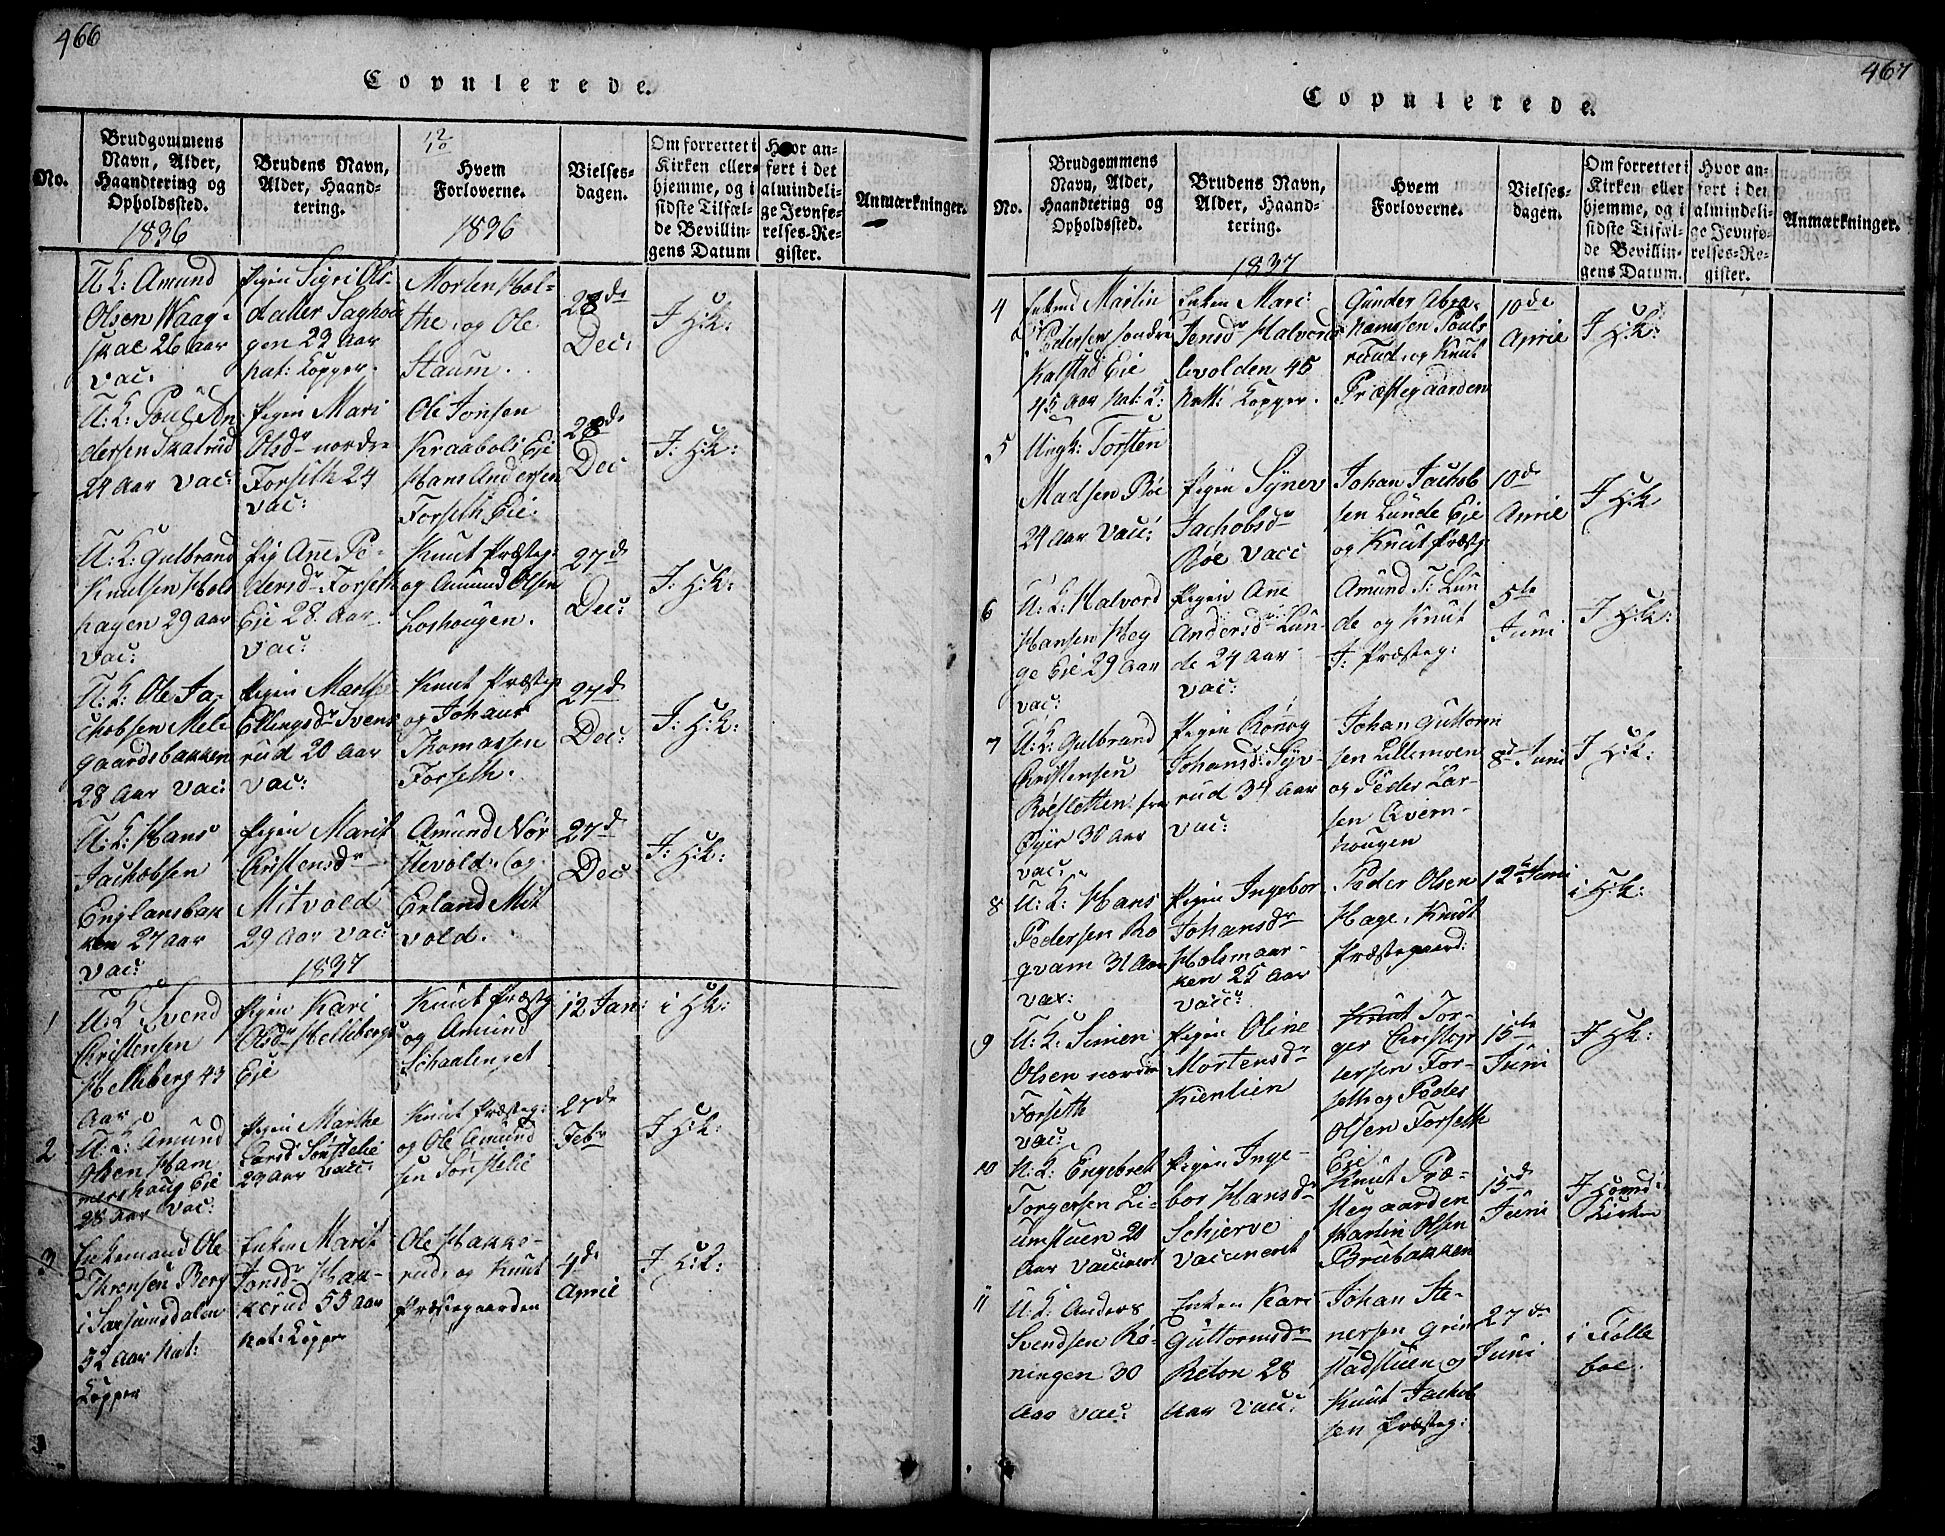 466
Copulerede.
No.
Brudgommens
Navn, Alder,
Haandtering og
Opholdssted.
1836
Brudens Navn,
Alder, Haand-
tering.
12
10
Hvem
Forloverne.
1836
Vielses-
dagen.
Om forrettet i
Kirken eller
hjemme, og i
sidste Tilfæl-
de Bevillin-
gens Datum
Hvor an-
ført i det
almindeli-
ge Jevnfø-
relses-Re-
gister.
Anmærkninger.
U: K: Amund
Olsen Waag-
skae 26 aar
vac.
Pigen Sigri Ols-
datter
gen 23 aar
nat: Kopper.
Morten Hol-
the, og Ole
Staum.
28de
Dec:
I H:K:
U: K: Poul An
dersen Skalrud
24 aar vac:
Pigen Mari
Olsdr nordre
Forseth 24
vac:
Ole Jonsen
Kraabols Eje
Hans Andersen
Forseth Eie:
28de
Dec
I: H:K:
U: K: Gulbrand
Knutsen Hols
hagen 29 aar
vac:
Pig Ane Pe-
dersdr Forseth
Eje 28 aar
vac:
Knut Præsteg:
og Amund Olsen
Loshougen.
27de
Dec:
I: H:K:
U: K: Ole Ja-
chobsen Mele
gaardsbakken
28 aar vac:
Pigen Marthe
Ellingsdr Svens
rud 20 aar
vac:
Knut Præsteg
og Johans
Thomassen
Forseth.
27de
Dec:
I: H:K:
U: K: Hans
Jachobsen
Englansbak
ken 27 aar
vac:
Pigen Marit
Christensdr
Mitvold
29 aar vac:
Amund Nor
stevold, og
Erland Mit
vold.
27de
Dec
I: H:K:
1837
1
U: K: Svend
Christensen
Helleberg 43
aar
Pigen Kari
Olsdr Hellebergs
Eje
Knut Præsteg
og Amund
Schaalenget
12 Jan:
i H:K:
2
U: K: Amund
Olsen Ham
mershaug Eje
28 aar vac:
Pigen Marthe
Larsd Sønstelie
29 aar vacc:
Knut Præsteg:
og Ole Amund
sen Sønstelie
27de
Febr
I H:K:
3
Enkemand Ole
Berg
52 aar nat:
Kopper
Enken Marit
Jonsdr Hak-
kerud 55 aar
nat: Kopper
Ole Hakke-
rud, og Knut
Præstegaarden
4de
April
I H:K:
467
Copulerede.
No.
Brudgommens
Navn, Alder,
Haandtering og
Opholdssted.
Brudens Navn,
Alder, Haand-
tering.
1837
Hvem
Forloverne.
Vielses-
dagen.
Om forrettet i
Kirken eller
hjemme, og i
sidste Tilfæl-
de Bevillin-
gens Datum.
Hvor an-
ført i det
almindeli-
ge Jevnfø-
relses-Re-
gister.
Anmærkninger.
4
Enkemd Martin
Pedersen søndre
Kalstad Eje
45 aar nat: K:
Enken Mari
Jensdr Halvords
levolden 45
natt: Kopper.
Gunder Abra-
hamssen Pouls
ruud, og Knut
Præstegaarden
10de
April
I H:K:
5
Ungk: Torsten
Madsen Röe
24 aar vacc:
Pigen Synev
Jachobsdr
Röe vacc
Johan Jachob
sen Lunde Eje
og Knut Præsteg
10de
April
I H:K
6
U: K: Halvord
Hansen Heg
ge Eje 29 aar
vac:
Pigen Ane
Andersdr Lun-
de 24 aar
vac:
Amund T: Lun
de og Knut
J: Præsteg:
5te
Juni
I H:K:
7
U: K: Gulbrand
Christensen
Röesletten fra
Øyer 30 aar
vac:
Pigen Rönog
Johansd: Syv-
rud 34 aar
vac:
Johan Guttorm
sen Lillemoen
og Peder Lar-
sen Qvern-
hougen
8d Juni
I H:K:
8
U: K: Hans
Pedersen Ro
qvam 31 aar
vac:
Pigen Ingebor
Johansdr
Holsmar-
ken 25 aar
vacc:
Peder Olsen
Hage, Knut
Præstegaard:
12te Juni
i H:K:
9
U: K: Simen
Olsen nordre
Forseth
vac:
Pigen Oline
Mortensdr
Kienlien
Knut Tor-
ger Christop
hersen For-
seth og Peder
Olsen Forseth
Eje
15te
Juni
I H:K:
10
U: K: Engebret
Torgersen Li-
umstuen 20
aar vaccineret
Pigen Inge-
bor Hansdr
Schjerve
vaccineret
Knut Præ-
stegaarden
Martin Olsen
Brubakken
15d
Juni
I Hoved
Kirken
11
U: K: Anders
Svendsen Rö-
ningen 30
aar vac:
Enken Kari
Guttormsdr
Reton 28
aar vacc:
Johan Ste-
nersen Grin
stadstuen, og
Knut Jachob
sen Præsteg:
27de
Juni
i Folle
boe.